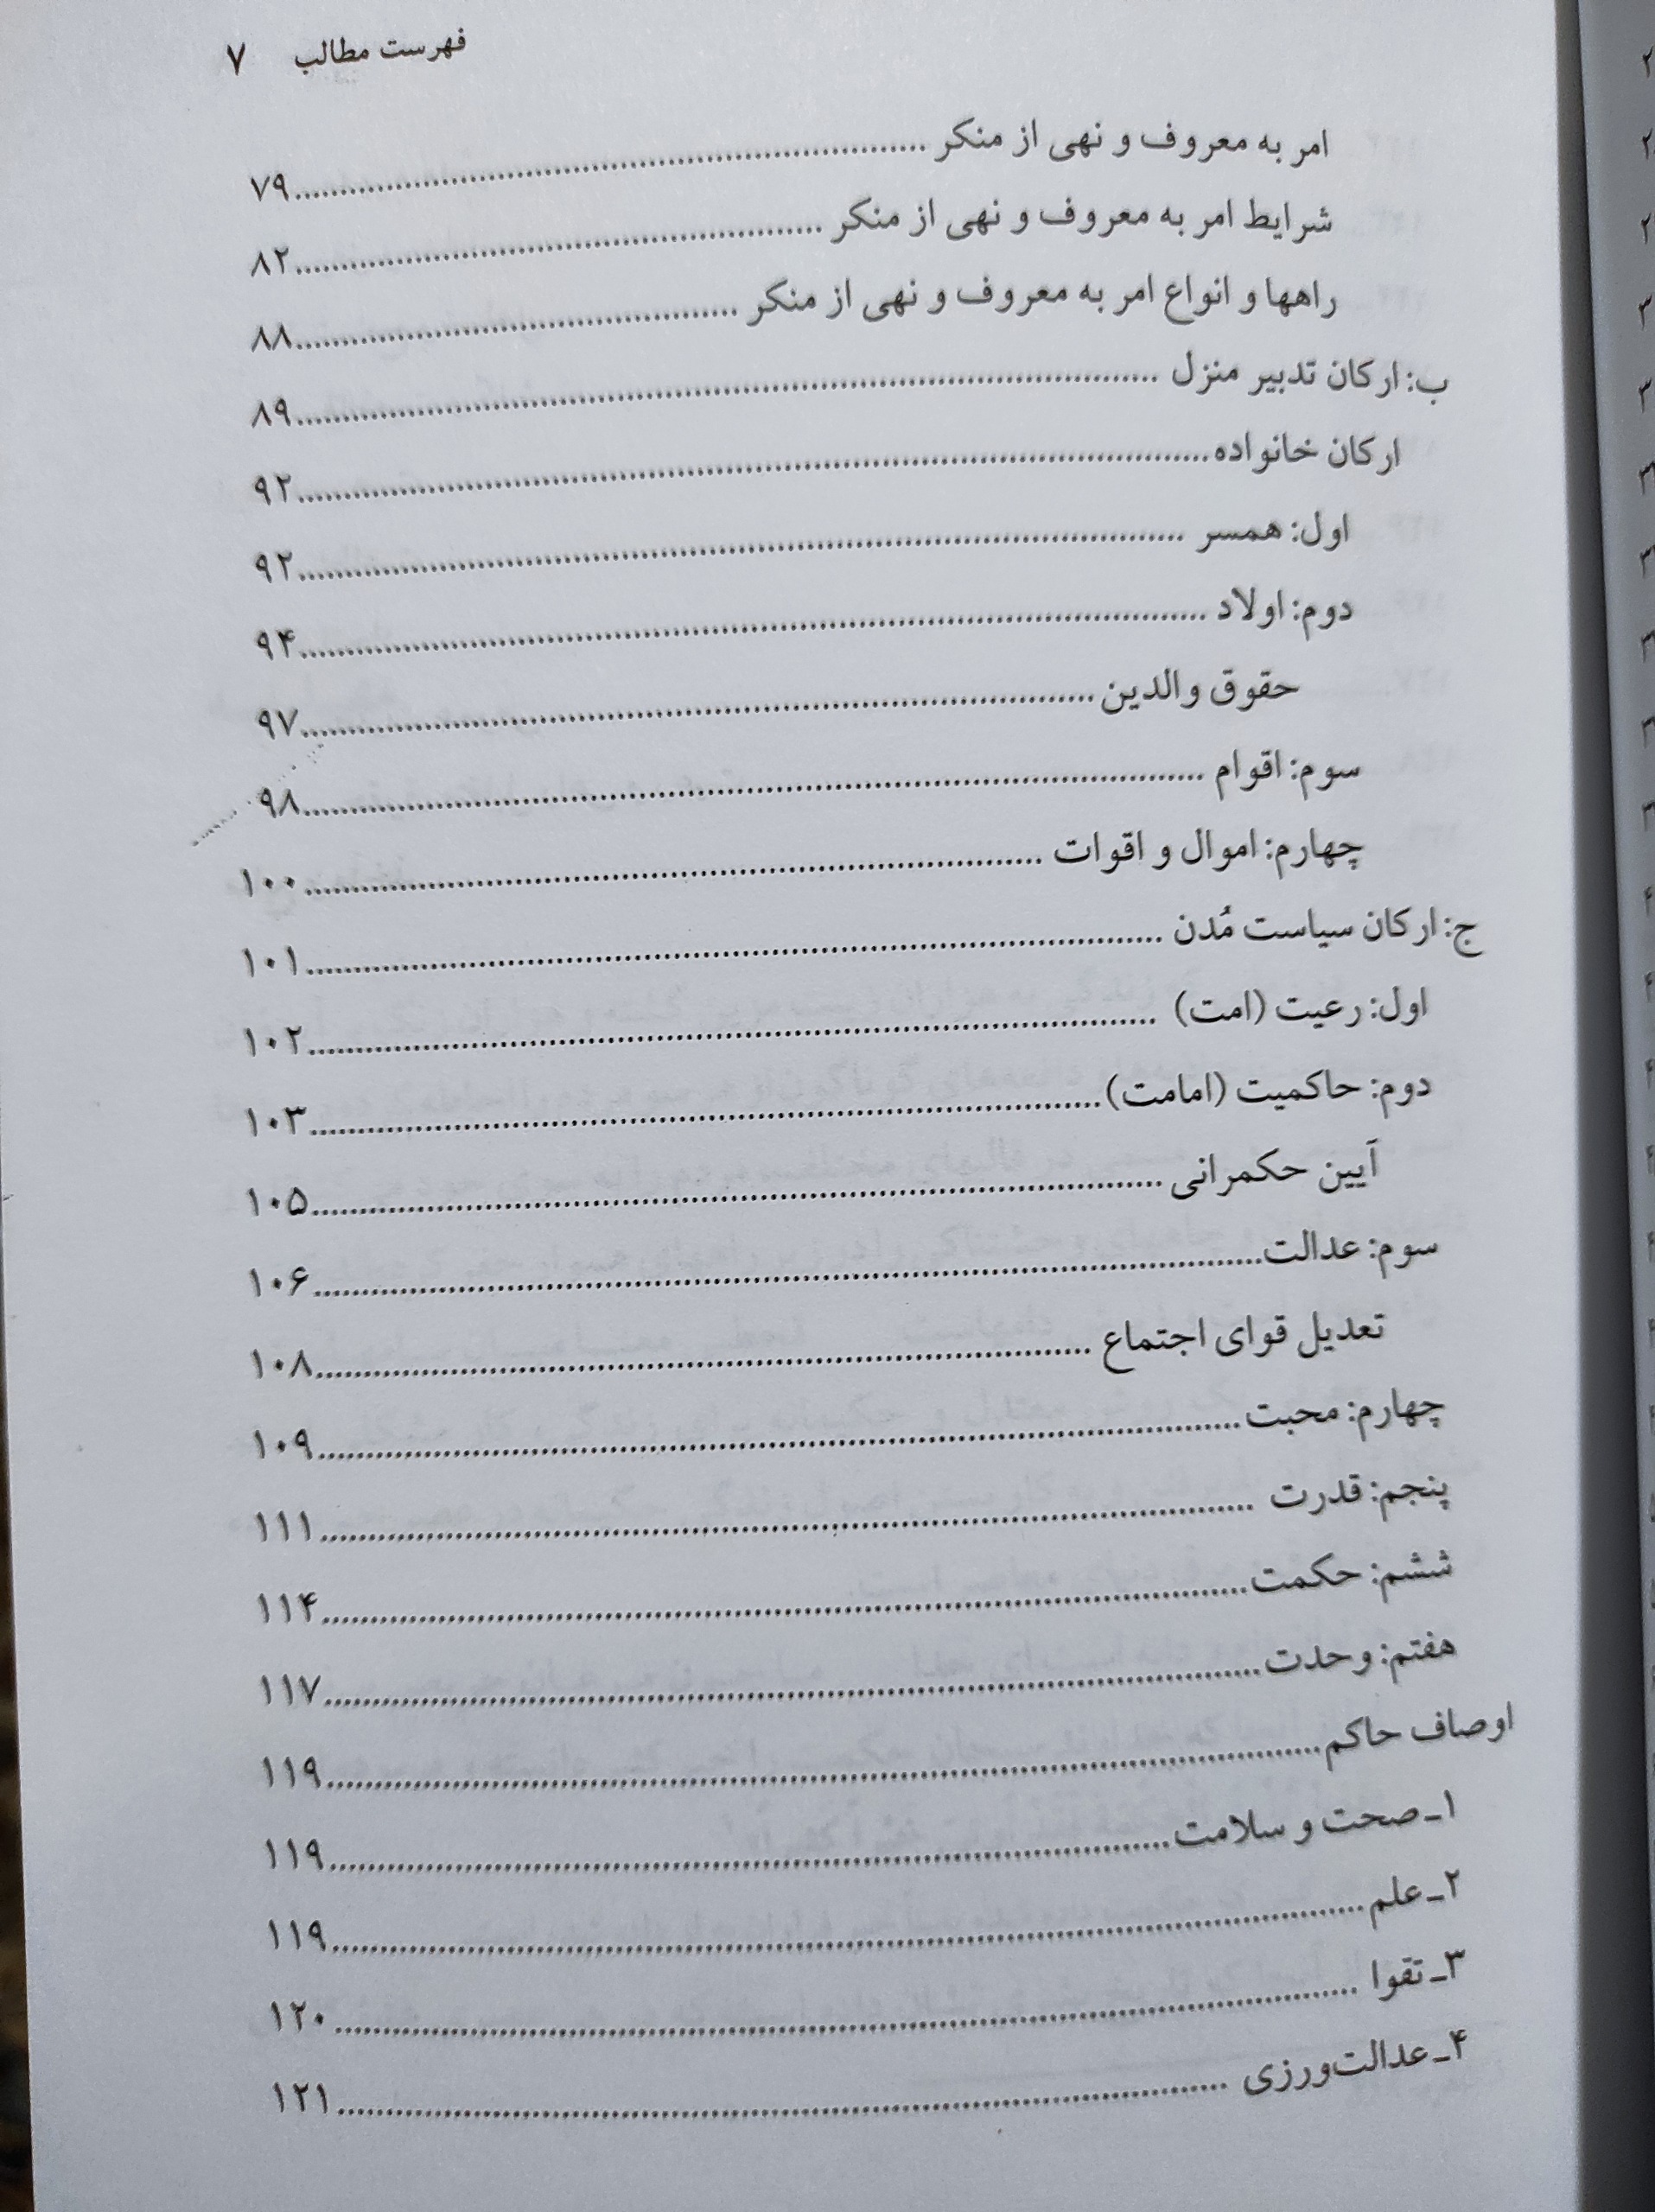 فهرست مطالب ۷
امر به معروف و نهی از منکر ........ ۷۹
شرایط امر به معروف و نهی از منکر ........ ۸۲
راهها و انواع امر به معروف و نهی از منکر ........ ۸۸
ب: ارکان تدبیر منزل ........ ۸۹
ارکان خانواده ........ ۹۲
اول: همسر ........ ۹۲
دوم: اولاد ........ ۹۴
حقوق والدین ........ ۹۷
سوم: اقوام ........ ۹۸
چهارم: اموال و اقوات ........ ۱۰۰
ج: ارکان سیاست مُدن ........ ۱۰۱
اول: رعیت (امت) ........ ۱۰۲
دوم: حاکمیت (امامت) ........ ۱۰۳
آیین حکمرانی ........ ۱۰۵
سوم: عدالت ........ ۱۰۶
تعدیل قوای اجتماع ........ ۱۰۸
چهارم: محبت ........ ۱۰۹
پنجم: قدرت ........ ۱۱۱
ششم: حکمت ........ ۱۱۴
هفتم: وحدت ........ ۱۱۷
اوصاف حاکم ........ ۱۱۹
۱ـ صحت و سلامت ........ ۱۱۹
۲ـ علم ........ ۱۱۹
۳ـ تقوا ........ ۱۲۰
۴ـ عدالت‌ورزی ........ ۱۲۱